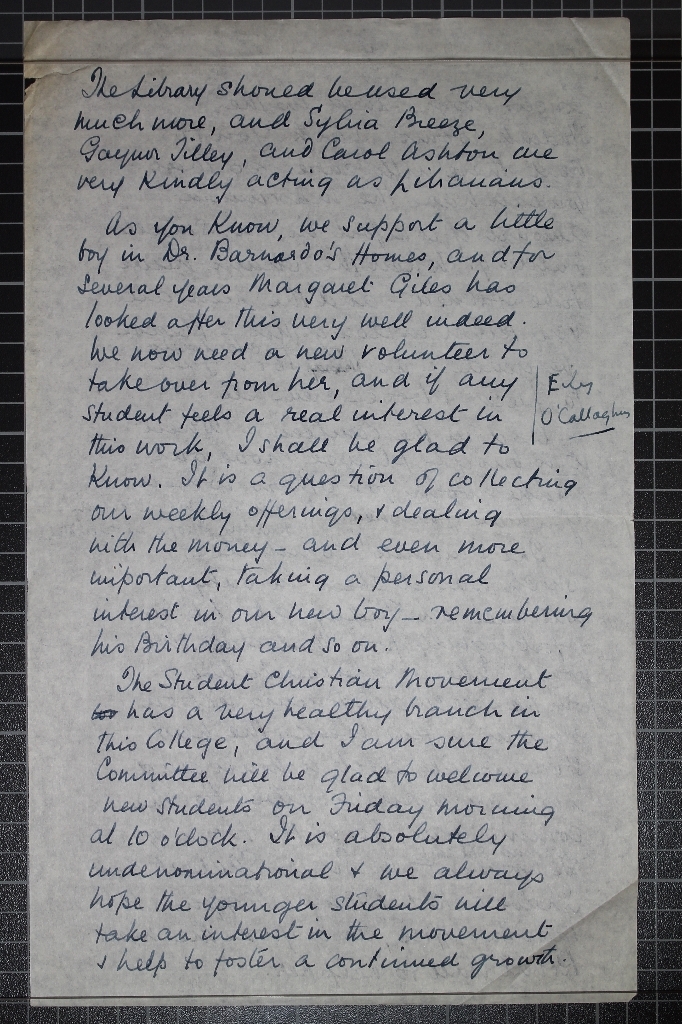 The Library should be used very
much more, and Sylvia Breeze,
Gaynor Tilley, and Carol Ashton are
very kindly acting as librarians.
As you know, we support a little
boy in Dr. Barnardo's Homes, and for
several years Margaret Giles has
looked after this very well indeed.
We now need a new volunteer to
take over from her, and if any
student feels a real interest in
this work, I shall be glad to
know. It is a question of collecting
our weekly offerings, & dealing
with the money – and even more
important, taking a personal
interest in our new boy – remembering
his Birthday and so on.
The Student Christian Movement
has a very healthy branch in
this College, and I am sure the
Committee will be glad to welcome
new students on Friday morning
at 10 o'clock. It is absolutely
undenominational & we always
hope the younger students will
take an interest in the movement
& help to foster a continued growth.
O'Callaghan